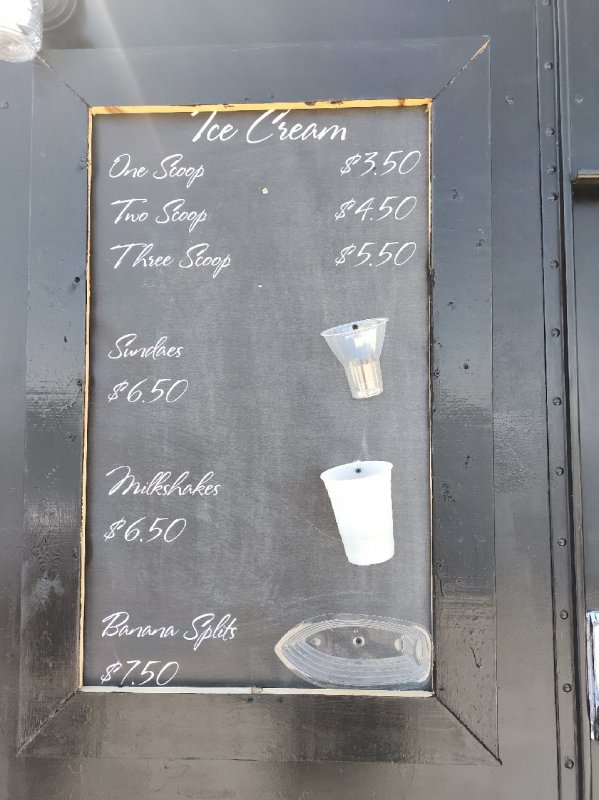 Ice Cream
One Scoop $3.50
Two Scoop $4.50
Three Scoop $5.50
Sundaes
$6.50
Milkshakes
$6.50
Banana Splits
$7.50